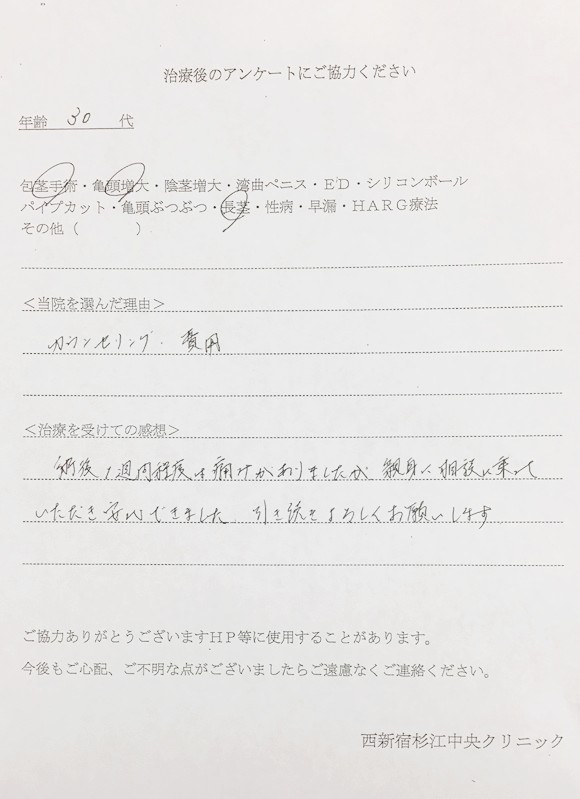 治療後のアンケートにご協力ください
年齢 30 代
包茎手術・亀頭増大・陰茎増大・湾曲ペニス・ED・シリコンボール
パイプカット・亀頭ぶつぶつ・長茎・性病・早漏・HARG療法
その他（　　　）
＜当院を選んだ理由＞
カウンセリング・費用
＜治療を受けての感想＞
術後1週間程度は痛みがありましたが 親身に相談に乗って
いただき安心できました 引き続きよろしくお願いします
ご協力ありがとうございますHP等に使用することがあります。
今後もご心配、ご不明な点がございましたらご遠慮なくご連絡ください。
西新宿杉江中央クリニック